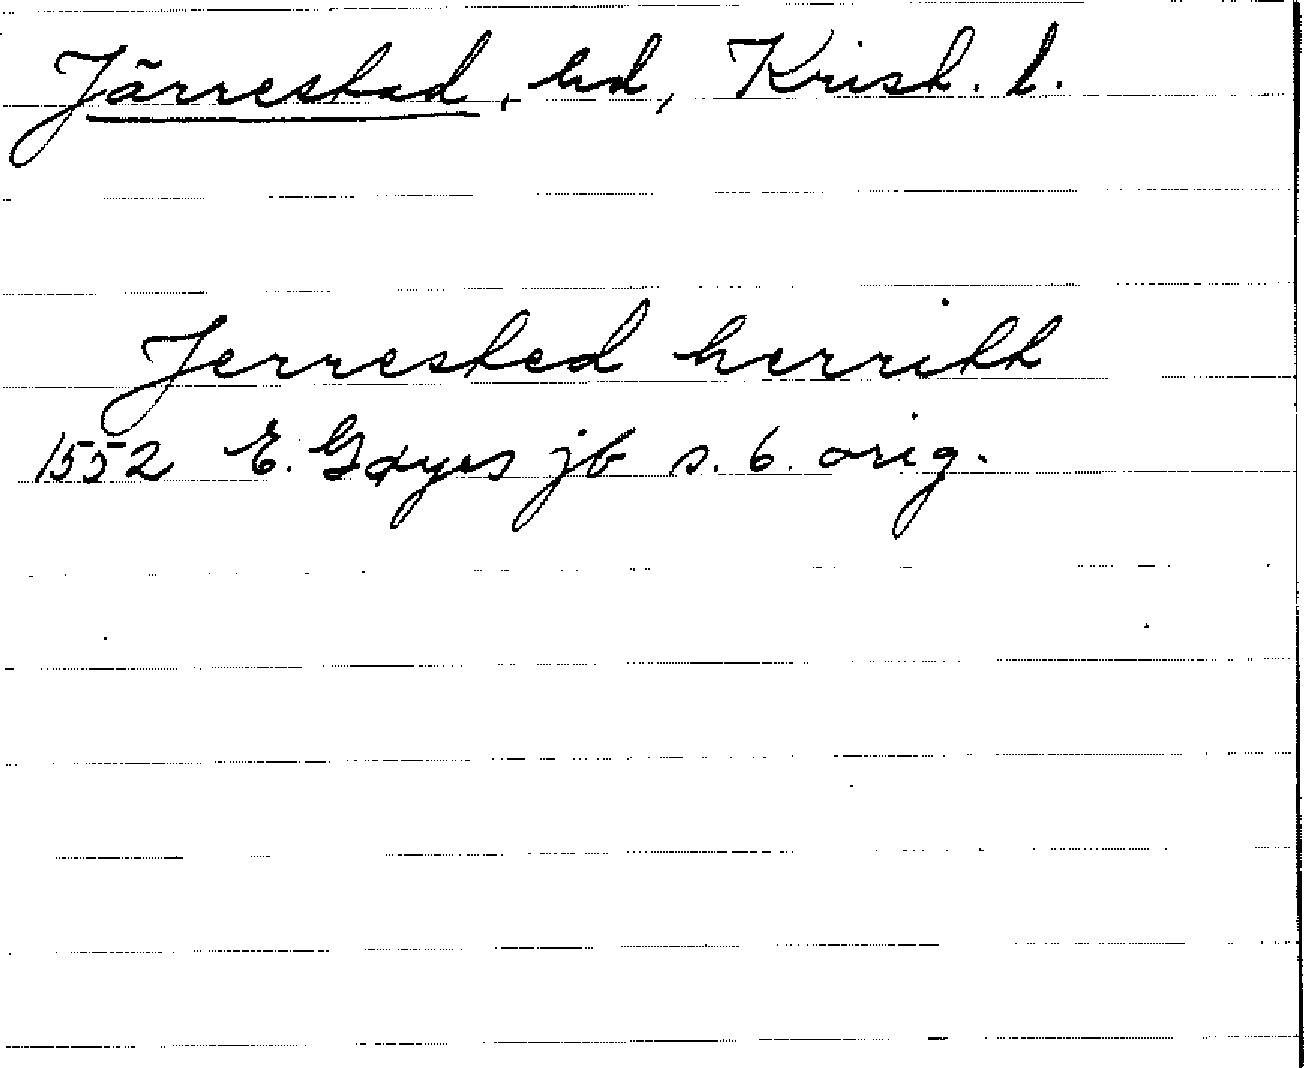 Järrestad, hd, Krist. l.
Jerrested herritt
1552 E. Gøyes jb s. 6. orig.